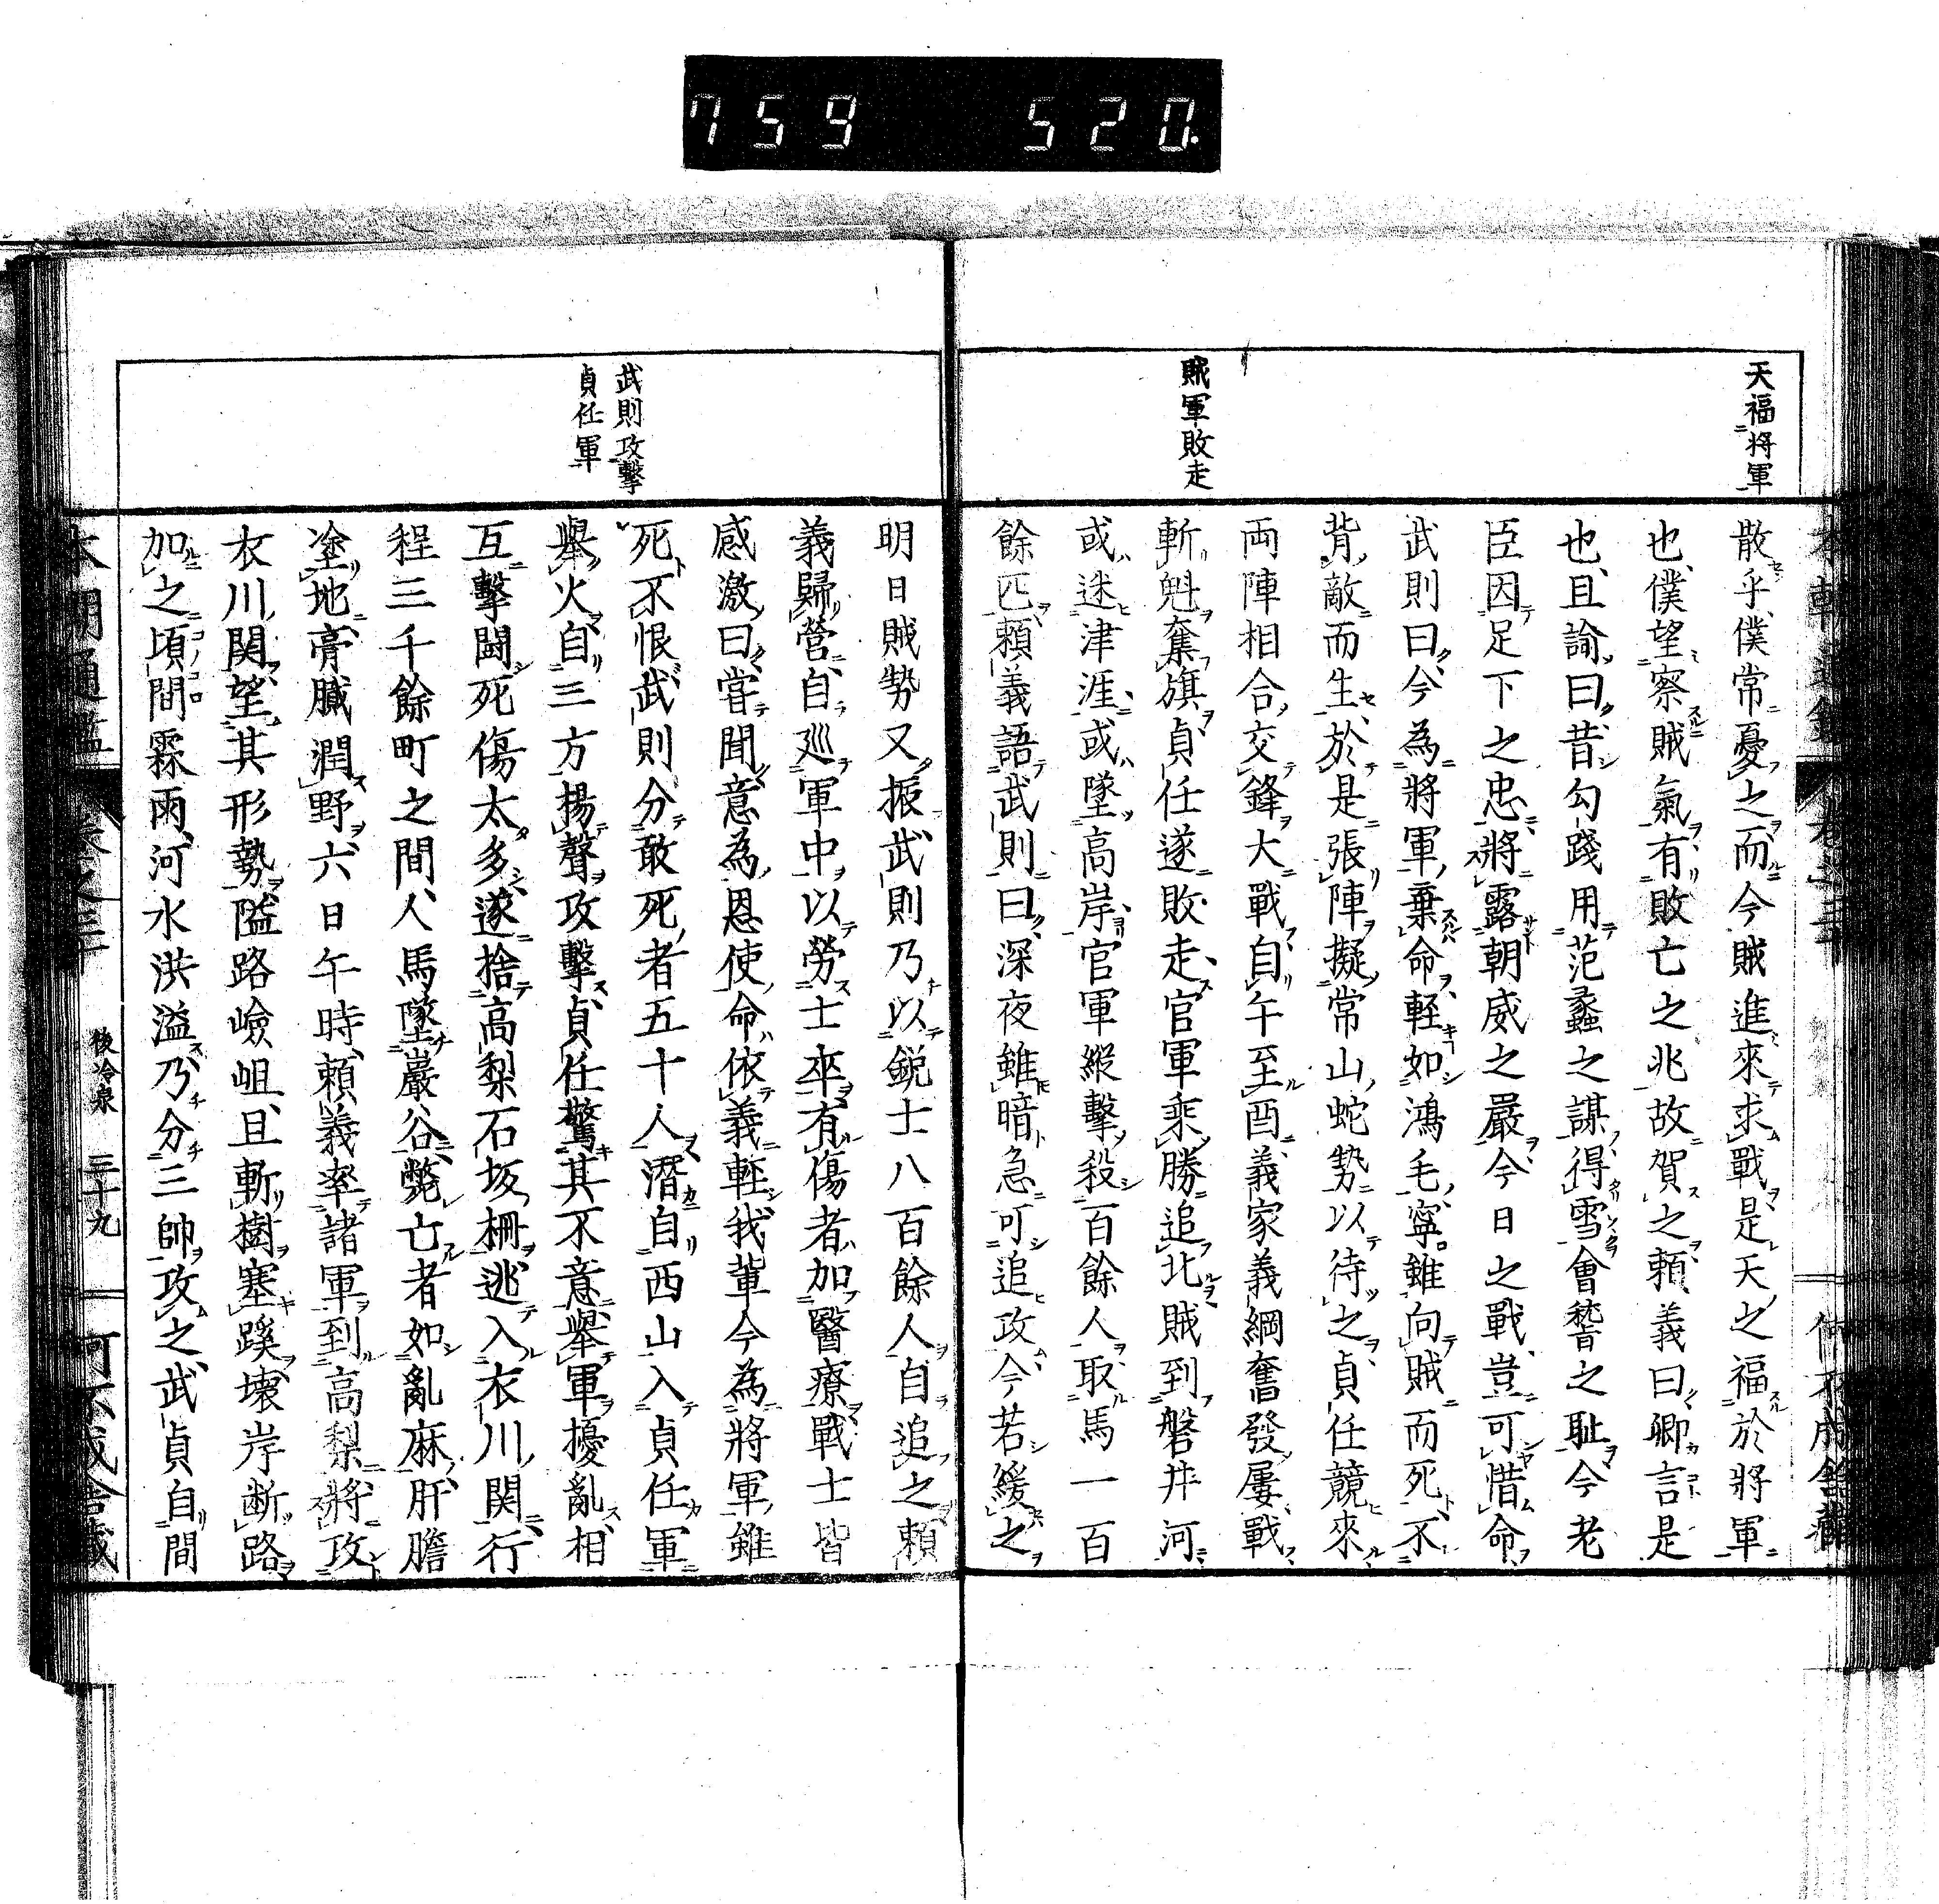 759 520.
天福将軍
散乎僕常憂之而今賊進來求戰是天之福於將軍
也僕望察賊氣有敗亡之兆故賀之頼義曰卿言是
也且諭曰昔勾踐用范蠡之謀得雪會稽之耻今老
臣因足下之忠將露朝威之嚴今日之戰豈可惜命
武則曰今為將軍棄命軽如鴻毛寧雖向賊而死不
背敵而生於是張陣擬常山蛇勢以待之貞任競來
両陣相合交鋒大戰自午至酉義家義綱奮發屢戰
賊軍敗走
斬魁奪旗貞任遂敗走官軍乘勝追北賊到磐井河
或迷津涯或墜高岸官軍縦擊殺百餘人取馬一百
餘匹頼義語武則曰深夜雖暗急可追攻今若緩之
明日賊勢又振武則乃以鋭士八百餘人自追之頼
義歸營自巡軍中以勞士卒有傷者加醫療戰士皆
感激曰嘗聞意為恩使命依義軽我輩今為將軍雖
武則攻擊
貞任軍
死不恨武則分敢死者五十人潛自西山入貞任軍
舉火自三方揚聲攻擊貞任驚其不意舉軍擾亂相
互擊鬪死傷太多遂捨高梨石坂柵逃入衣川関行
程三千餘町之間人馬墜巖谷斃亡者如亂麻肝膽
塗地膏膩潤野六日午時頼義率諸軍到高梨將攻
衣川関望其形勢隘路嶮岨且斬樹塞蹊壊岸断路
加之頃間霖雨河水洪溢乃分三帥攻之武貞自間
本朝通鑑 卷之三十 後冷泉 三十九